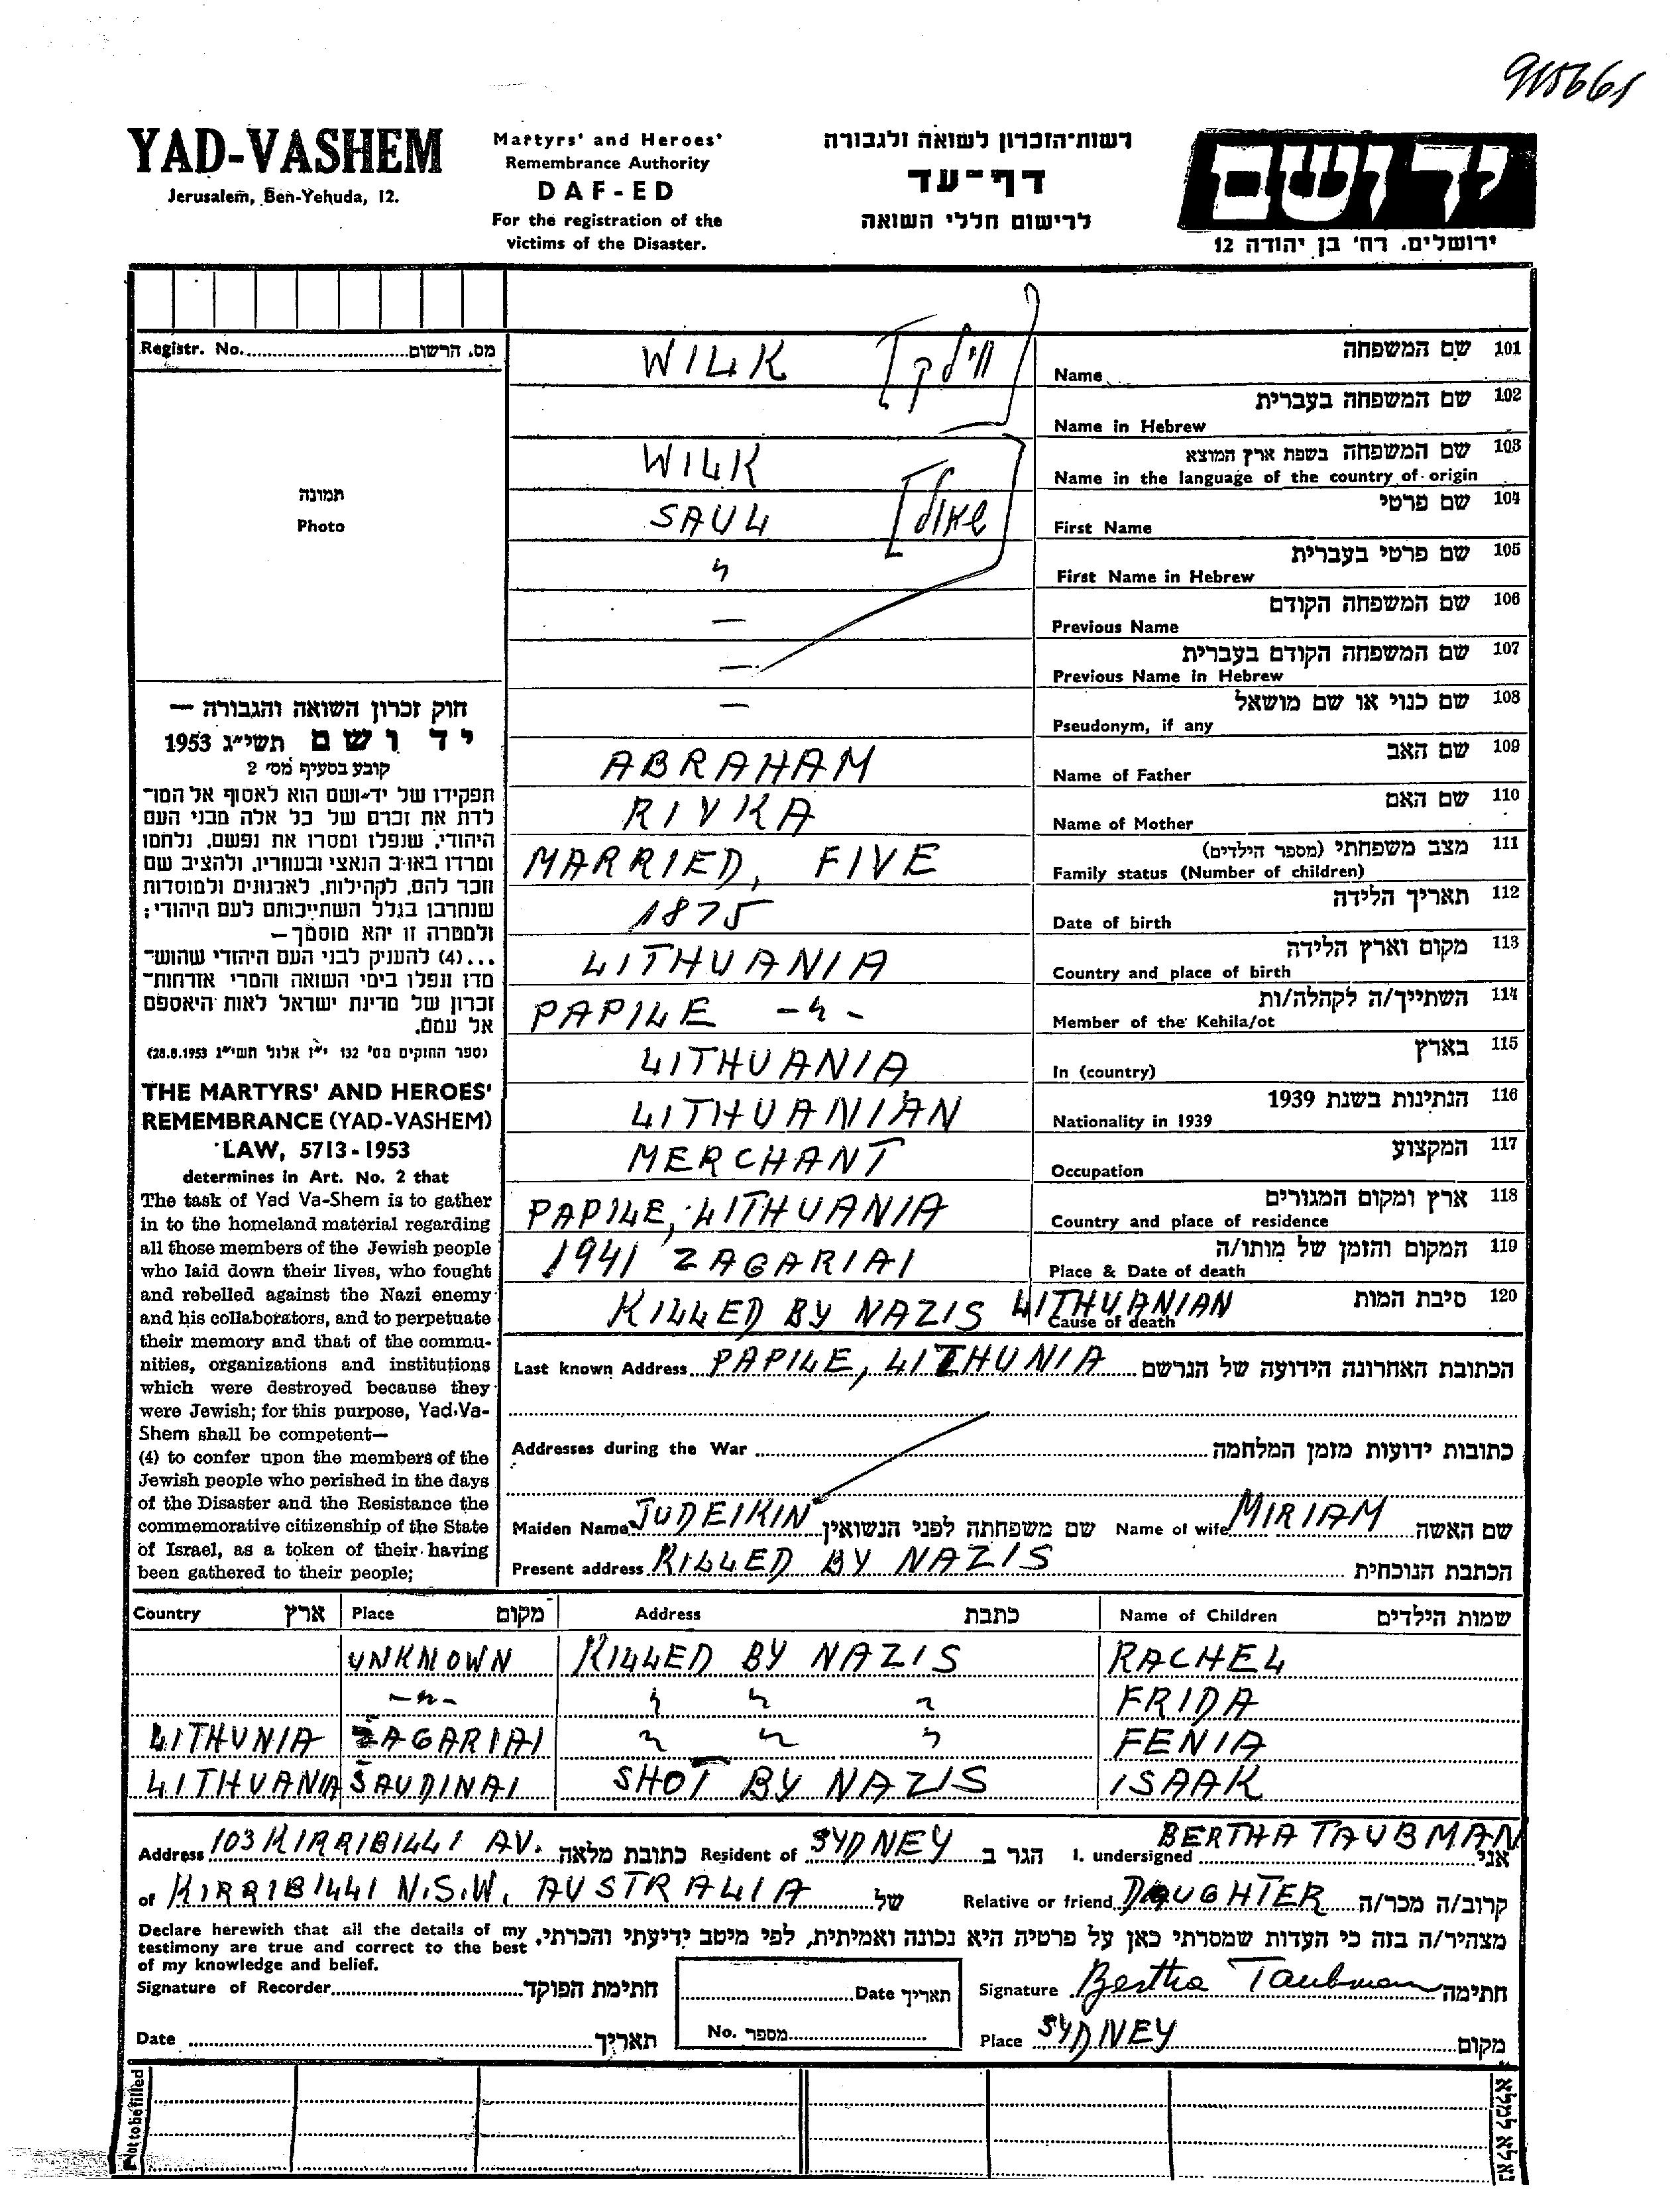 915661
YAD-VASHEM
Jerusalem, Ben-Yehuda, 12.
Martyrs' and Heroes'
Remembrance Authority
DAF-ED
For the registration of the
victims of the Disaster.
רשות-הזכרון לשואה ולגבורה
דף-עד
לרישום חללי השואה
יד ושם
ירושלים. רח' בן יהודה 12
Registr. No. מס. הרשום
תמונה
Photo
חוק זכרון השואה והגבורה —
יד ושם תשי"ג 1953
קובע בסעיף מס' 2
תפקידו של יד-ושם הוא לאסוף אל המו־
לדת את זכרם של כל אלה מבני העם
היהודי, שנפלו ומסרו את נפשם, נלחמו
ומרדו באויב הנאצי ובעוזריו, ולהציב שם
וזכר להם, לקהילות, לארגונים ולמוסדות
שנחרבו בגלל השתייכותם לעם היהודי;
ולמטרה זו יהא מוסמך —
...(4) להעניק לבני העם היהודי שהוש־
מדו ונפלו בימי השואה והמרי אזרחות־
זכרון של מדינת ישראל לאות היאספם
אל עמם.
(ספר החוקים מס' 132 י"ז אלול תשי"ג 28.8.1953)
THE MARTYRS' AND HEROES'
REMEMBRANCE (YAD-VASHEM)
LAW, 5713-1953
determines in Art. No. 2 that
The task of Yad Va-Shem is to gather
in to the homeland material regarding
all those members of the Jewish people
who laid down their lives, who fought
and rebelled against the Nazi enemy
and his collaborators, and to perpetuate
their memory and that of the commu-
nities, organizations and institutions
which were destroyed because they
were Jewish; for this purpose, Yad-Va-
Shem shall be competent—
(4) to confer upon the members of the
Jewish people who perished in the days
of the Disaster and the Resistance the
commemorative citizenship of the State
of Israel, as a token of their having
been gathered to their people;
WILK [ווילק] 101 שם המשפחה
Name
102 שם המשפחה בעברית
Name in Hebrew
WILK 103 שם המשפחה בשפת ארץ המוצא
Name in the language of the country of origin
SAUL [שאול] 104 שם פרטי
First Name
〃 105 שם פרטי בעברית
First Name in Hebrew
— 106 שם המשפחה הקודם
Previous Name
— 107 שם המשפחה הקודם בעברית
Previous Name in Hebrew
— 108 שם כנוי או שם מושאל
Pseudonym, if any
ABRAHAM 109 שם האב
Name of Father
RIVKA 110 שם האם
Name of Mother
MARRIED, FIVE 111 מצב משפחתי (מספר הילדים)
Family status (Number of children)
1875 112 תאריך הלידה
Date of birth
LITHUANIA 113 מקום וארץ הלידה
Country and place of birth
PAPILE -〃- 114 השתייך/ה לקהלה/ות
Member of the Kehila/ot
LITHUANIA 115 בארץ
In (country)
LITHUANIAN 116 הנתינות בשנת 1939
Nationality in 1939
MERCHANT 117 המקצוע
Occupation
PAPILE, LITHUANIA 118 ארץ ומקום המגורים
Country and place of residence
1941 ZAGARIAI 119 המקום והזמן של מותו/ה
Place & Date of death
KILLED BY NAZIS LITHUANIAN 120 סיבת המות
Cause of death
Last known Address PAPILE, LITHUNIA הכתובת האחרונה הידועה של הנרשם
Addresses during the War כתובות ידועות מזמן המלחמה
Maiden Name JUDEIKIN שם משפחתה לפני הנשואין Name of wife MIRIAM שם האשה
Present address KILLED BY NAZIS הכתבת הנוכחית
Country ארץ Place מקום Address כתבת Name of Children שמות הילדים
UNKNOWN KILLED BY NAZIS RACHEL
-〃- 〃 〃 〃 FRIDA
LITHUNIA ZAGARIAI 〃 〃 〃 FENIA
LITHUANIA SAUDINAI SHOT BY NAZIS ISAAK
Address 103 KIRRIBILLI AV. כתובת מלאה Resident of SYDNEY הגר ב I. undersigned BERTHA TAUBMAN אני
of KIRRIBILLI N.S.W. AUSTRALIA של Relative or friend DAUGHTER קרוב/ה מכר/ה
Declare herewith that all the details of my
testimony are true and correct to the best
of my knowledge and belief.
מצהיר/ה בזה כי העדות שמסרתי כאן על פרטיה היא נכונה ואמיתית, לפי מיטב ידיעתי והכרתי.
Signature of Recorder חתימת הפוקד Date תאריך Signature Bertha Taubman חתימה
Date תאריך No. מספר Place SYDNEY מקום
Not to be filled
נא לא למלא